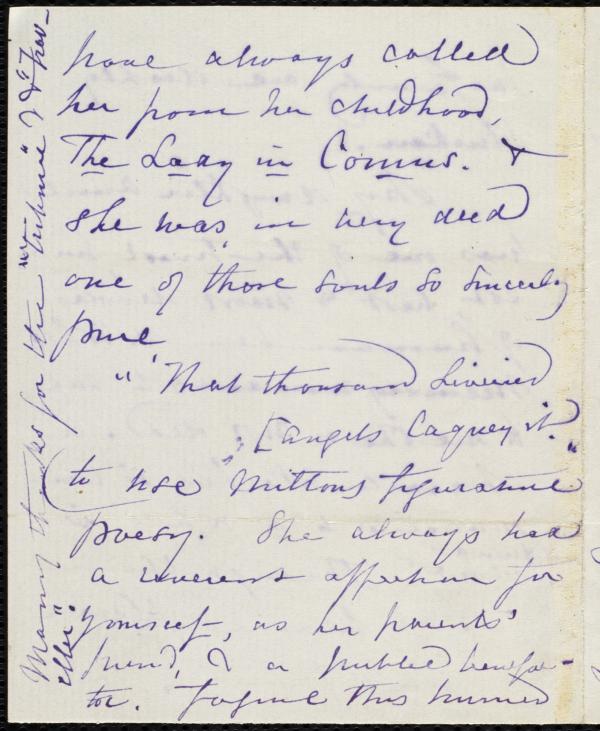 have always called
her from her childhood,
The Lady in Comus. &
she was in very deed
one of those souls so sincerely
pure
"That thousand liveried
[angels laquey it."
to use Milton's figurative
poesy. She always had
a reverent affection for
yourself, as her parents'
friend, & a public benefac-
tor. Forgive this hurried
Many thanks for the "Tribune" & "Trav-
eller".